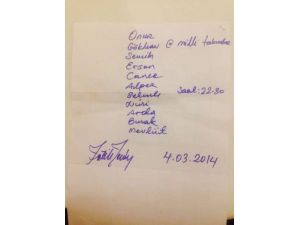 Onur
Gökhan @ milli takımlar
Semih
Ersan
Caner
Alper Saat: 22-30
Selçuk
Nuri
Arda
Burak
Mevlüt
4.03.2014